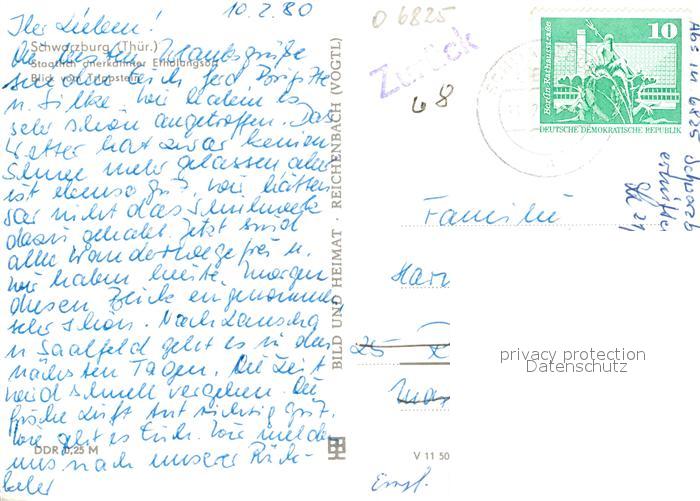 10.2.80
Ihr Lieben!
Schwarzburg (Thür.)
Staatlich anerkannter Erholungsort
Blick vom Trippstein
Urlaubsgrüße
sendet Euch Brigitte
u. Silke. Wir haben es
sehr schön angetroffen. Das
Wetter hat zwar keinen
Schnee mehr gelassen aber
ist ebenso gut, wir hätten
gar nicht das
davon gehabt. Jetzt sind
alle Wanderwege frei u.
wir haben heute morgen
diesen Blick eingenommen
sehr schön. Nach Lauscha
u Saalfeld geht es in den
nächsten Tagen. Die Zeit
wird schnell vergehen. Die
frische Luft tut richtig gut.
Wie geht es Euch. Wir melden
uns nach unserer Rück-
kehr
DDR 0,25 M
BILD UND HEIMAT · REICHENBACH (VOGTL)
V 11 50
O 6825
Zurück
68
10
Berlin · Rathausstraße
DEUTSCHE DEMOKRATISCHE REPUBLIK
Abs in 6825 Schwarzb
Familie
25
privacy protection
Datenschutz